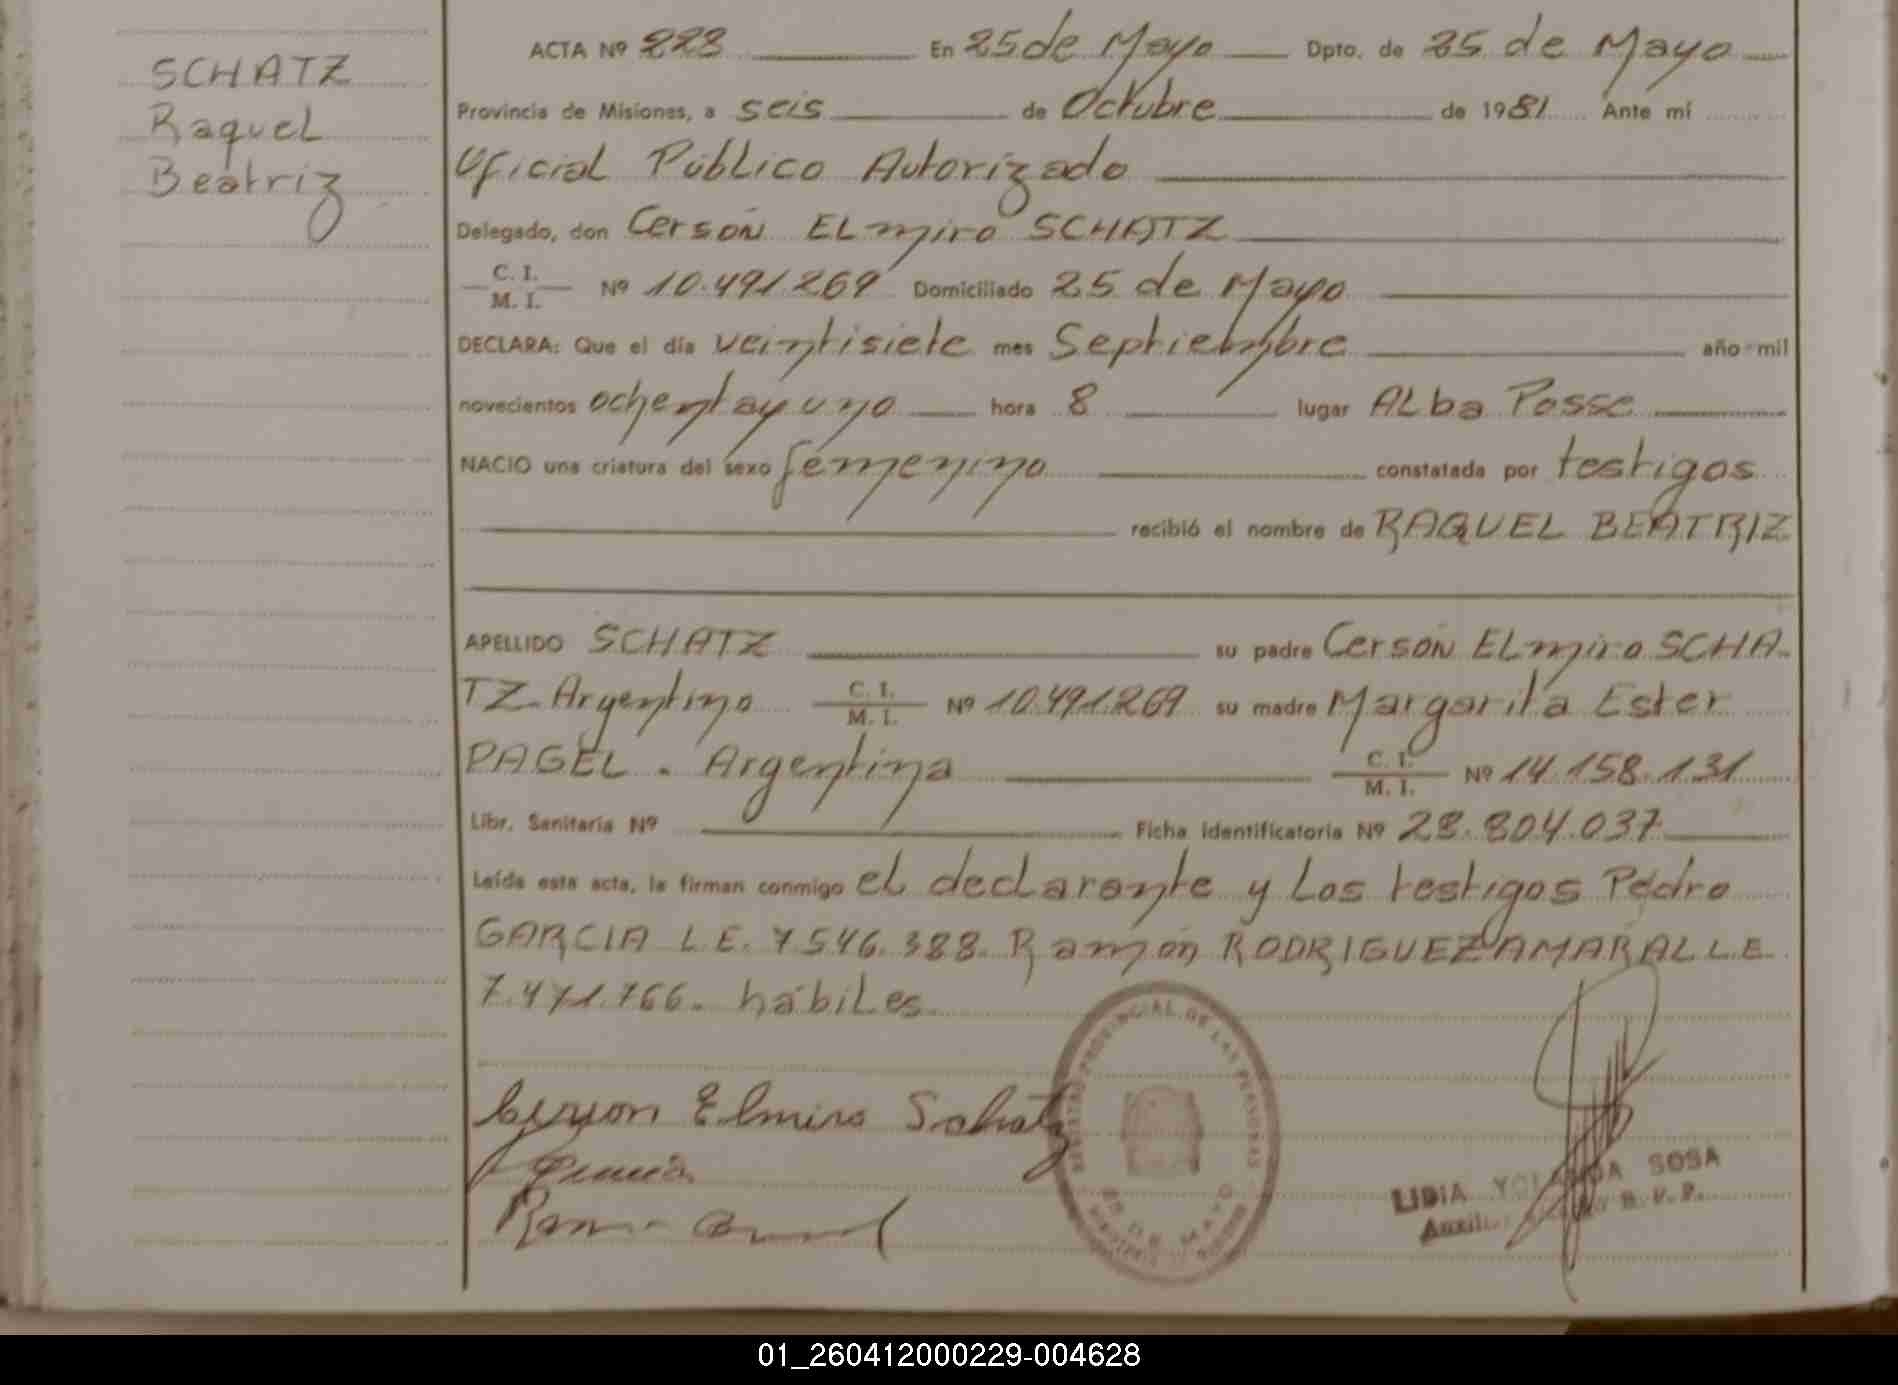 SCHATZ
Raquel
Beatriz
ACTA Nº 223 En 25 de Mayo Dpto. de 25 de Mayo
Provincia de Misiones, a seis de Octubre de 1981 Ante mí
Oficial Público Autorizado
Delegado, don Cersón ELmiro SCHATZ
C. I.
M. I. Nº 10.491.269 Domiciliado 25 de Mayo
DECLARA: Que el día veintisiete mes Septiembre año mil
novecientos ochentayuno hora 8 lugar ALba Posse
NACIO una criatura del sexo femenino constatada por testigos
recibió el nombre de RAQUEL BEATRIZ
APELLIDO SCHATZ su padre Cersón ELmiro SCHA-
TZ-Argentino C. I. M. I. Nº 10.491.269 su madre Margarita Ester
PAGEL. Argentina C. I. M. I. Nº 14.158.131
Libr. Sanitaria Nº Ficha Identificatoria Nº 28.804.037
Leída esta acta, la firman conmigo el declarante y Los testigos Pedro
GARCIA L.E. 7546.388. Ramón RODRIGUEZ AMARAL L.E
7.471.766. hábiles.
Cerson Elmiro Schatz
REGISTRO PROVINCIAL DE LAS PERSONAS
25 DE MAYO
MISIONES
LIDIA YOLANDA SOSA
R. V. P.
01_260412000229-004628